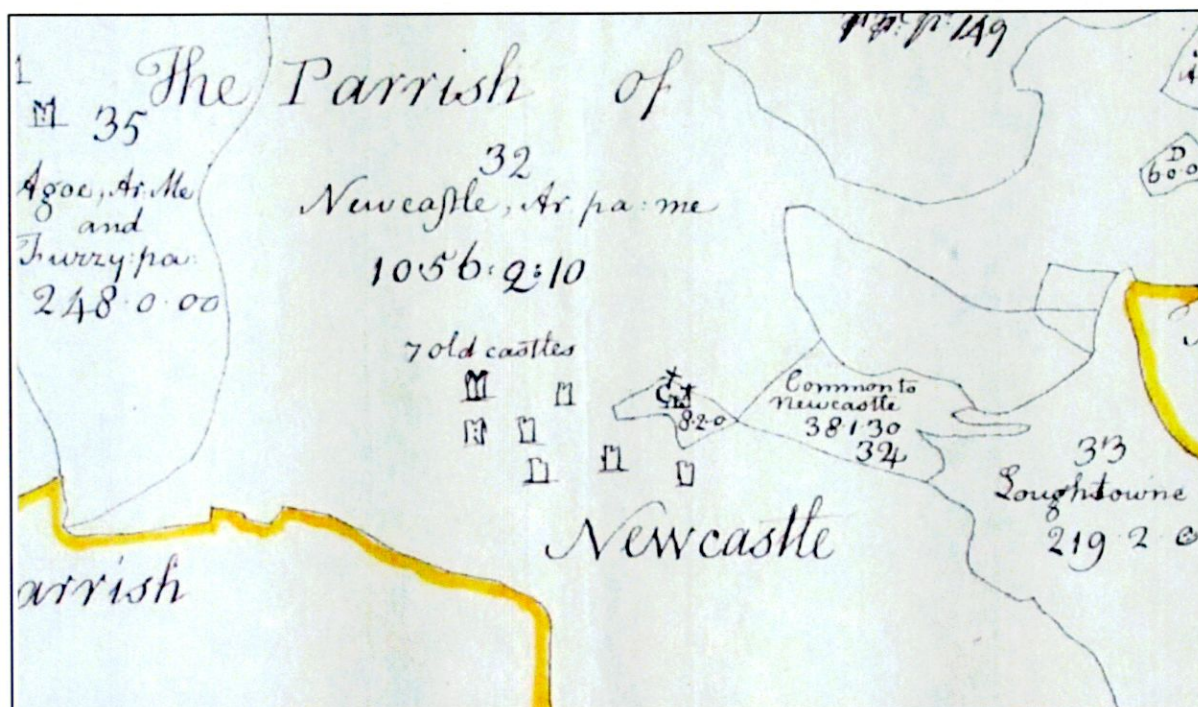 pp: p: 149
The Parrish of
35
Agoe, Ar. Me
and
Furzy: pa:
248·0·00
32
Newcastle, Ar. pa: me
1056:2:10
D
60·0
7 old castles
8·2·0
Common to
Newcastle
38·1·30
34
33
Loughtowne
219·2·0
Newcastle
arrish